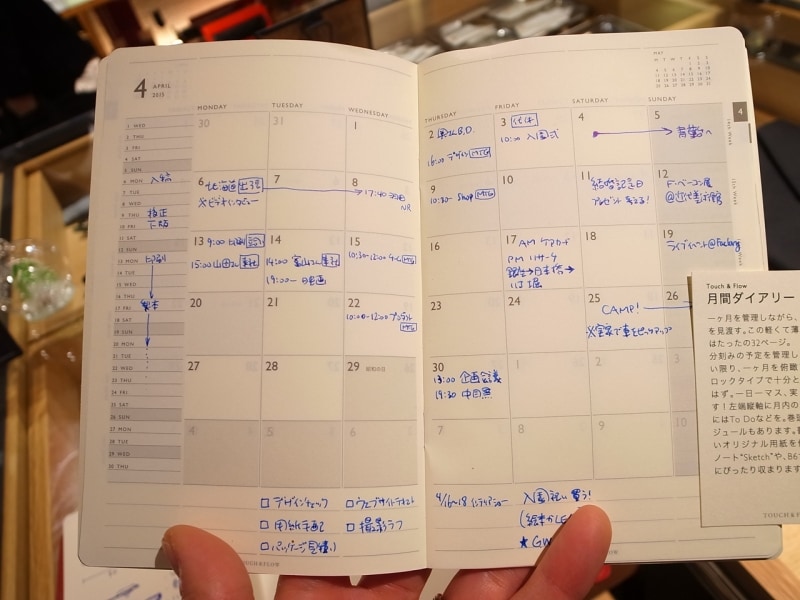 4 APRIL
2015
MONDAY TUESDAY WEDNESDAY
30 31 1
6 北海道出張 7 8
17:40 羽田
13 9:00 印刷 14 15
15:00 14:00 10:30-12:00
19:00- 映画
20 21 22
10:00-12:00 プレゼント MTG
27 28 29 昭和の日
4 5 6
1 WED
2 THU
3 FRI
4 SAT
5 SUN
6 MON 入稿
7 TUE
8 WED
9 THU 校正
10 FRI 下版
11 SAT
12 SUN
13 MON 印刷
14 TUE
15 WED
16 THU
17 FRI 製本
18 SAT
19 SUN
20 MON
21 TUE
22 WED
23 THU
24 FRI
25 SAT
26 SUN
27 MON
28 TUE
29 WED
30 THU
□ デザインチェック □ ウェブサイトテキスト
□ 用紙手配 □ 撮影ラフ
□ パッケージ見積り
TOUCH & FLOW
MAY
THURSDAY FRIDAY SATURDAY SUNDAY
2 3 代休 4 5
16:00 デザインMTG 10:00 入園式
9 10 11 結婚記念日 12 F・ベーコン展
10:30 Shop MTG プレゼント考える! @近代美術館
16 17 AM 18 19
PM リサーチ
銀座→日本橋→
23 24 25 CAMP! 26
※実家で車をピックアップ
30 1 2 3
13:00 企画会議
19:30 中目黒
7 8 9 10
4/16~18 インテリアショー 入園祝い買う!
★GW
4
Touch & Flow
月間ダイアリー
一ヶ月を管理しながら、
を見渡す。この軽くて薄
はたったの32ページ。
分刻みの予定を管理し
い限り、一ヶ月を俯瞰
ロックタイプで十分と
はず。一日一マス、実
す！左端縦軸に月内の
にはTo Doなどを。巻頭
ジュールもあります。
いオリジナル用紙を
ノート"Sketch"や、B6
にぴったり収まります
TOUCH & F